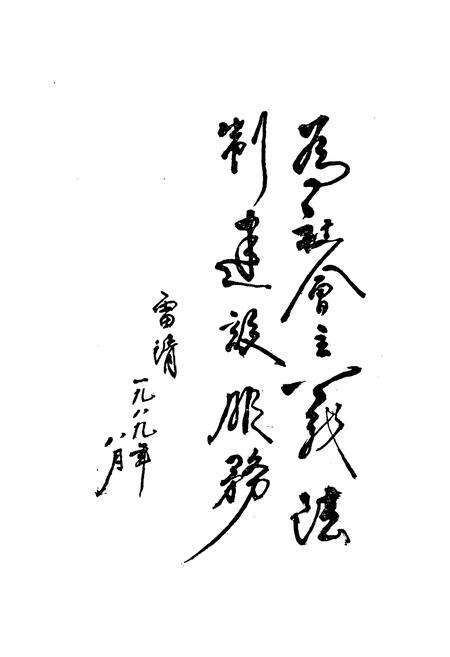 為社會主義法
制建設服務
雷
一九八九年
八月